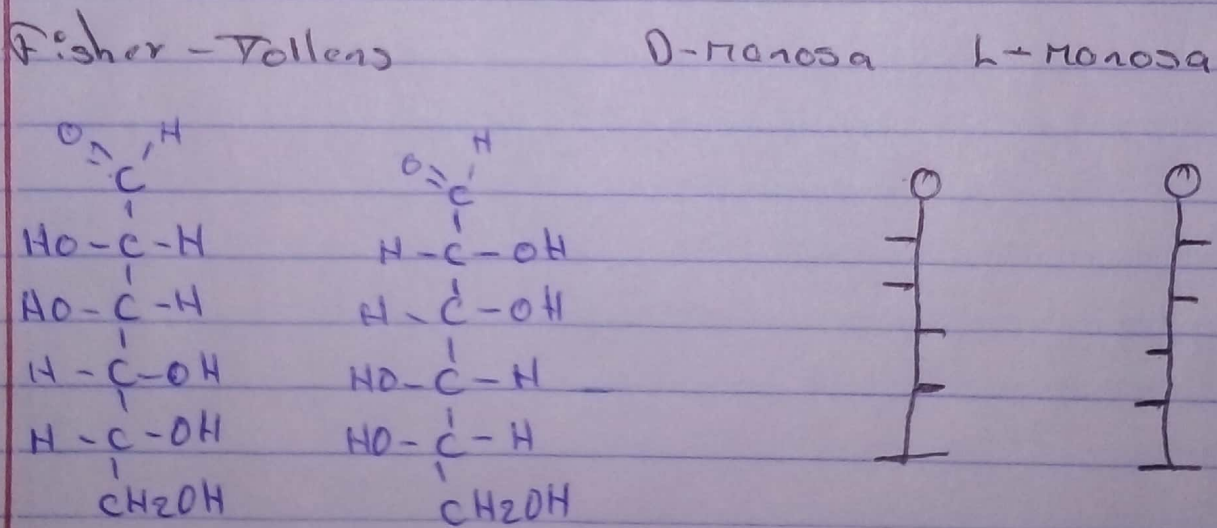 Fisher - Tollens D-Manosa L-Manosa
O H H
C O C
HO-C-H H-C-OH
HO-C-H H-C-OH
H-C-OH HO-C-H
H-C-OH HO-C-H
CH2OH CH2OH